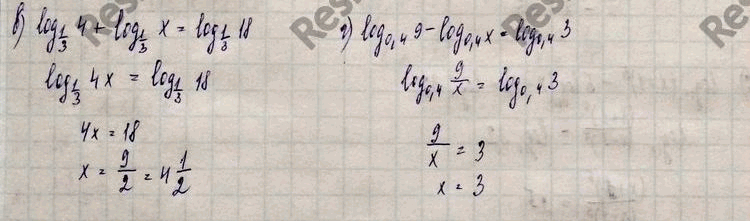 в) log_{1/3} 4 + log_{1/3} x = log_{1/3} 18
log_{1/3} 4x = log_{1/3} 18
4x = 18
x = 9/2 = 4 1/2
г) log_{0,4} 9 - log_{0,4} x = log_{0,4} 3
log_{0,4} 9/x = log_{0,4} 3
9/x = 3
x = 3